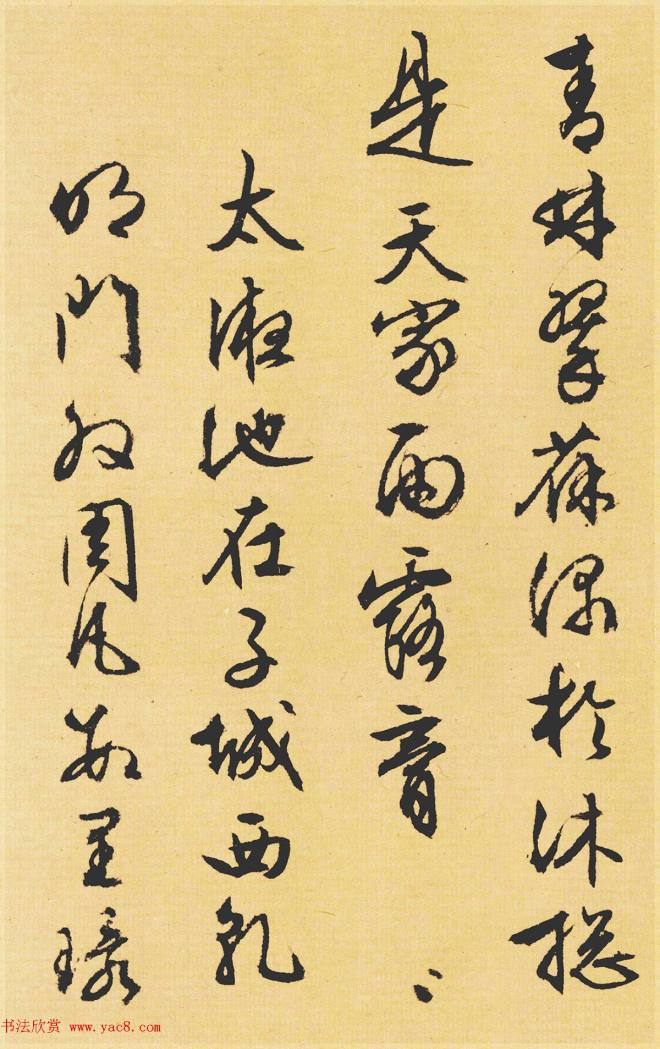 青林翠葆深於沐總
是天家雨露膏〻
太液池在子城西乾
明門外周凡數里環
书法欣赏 www.yac8.com